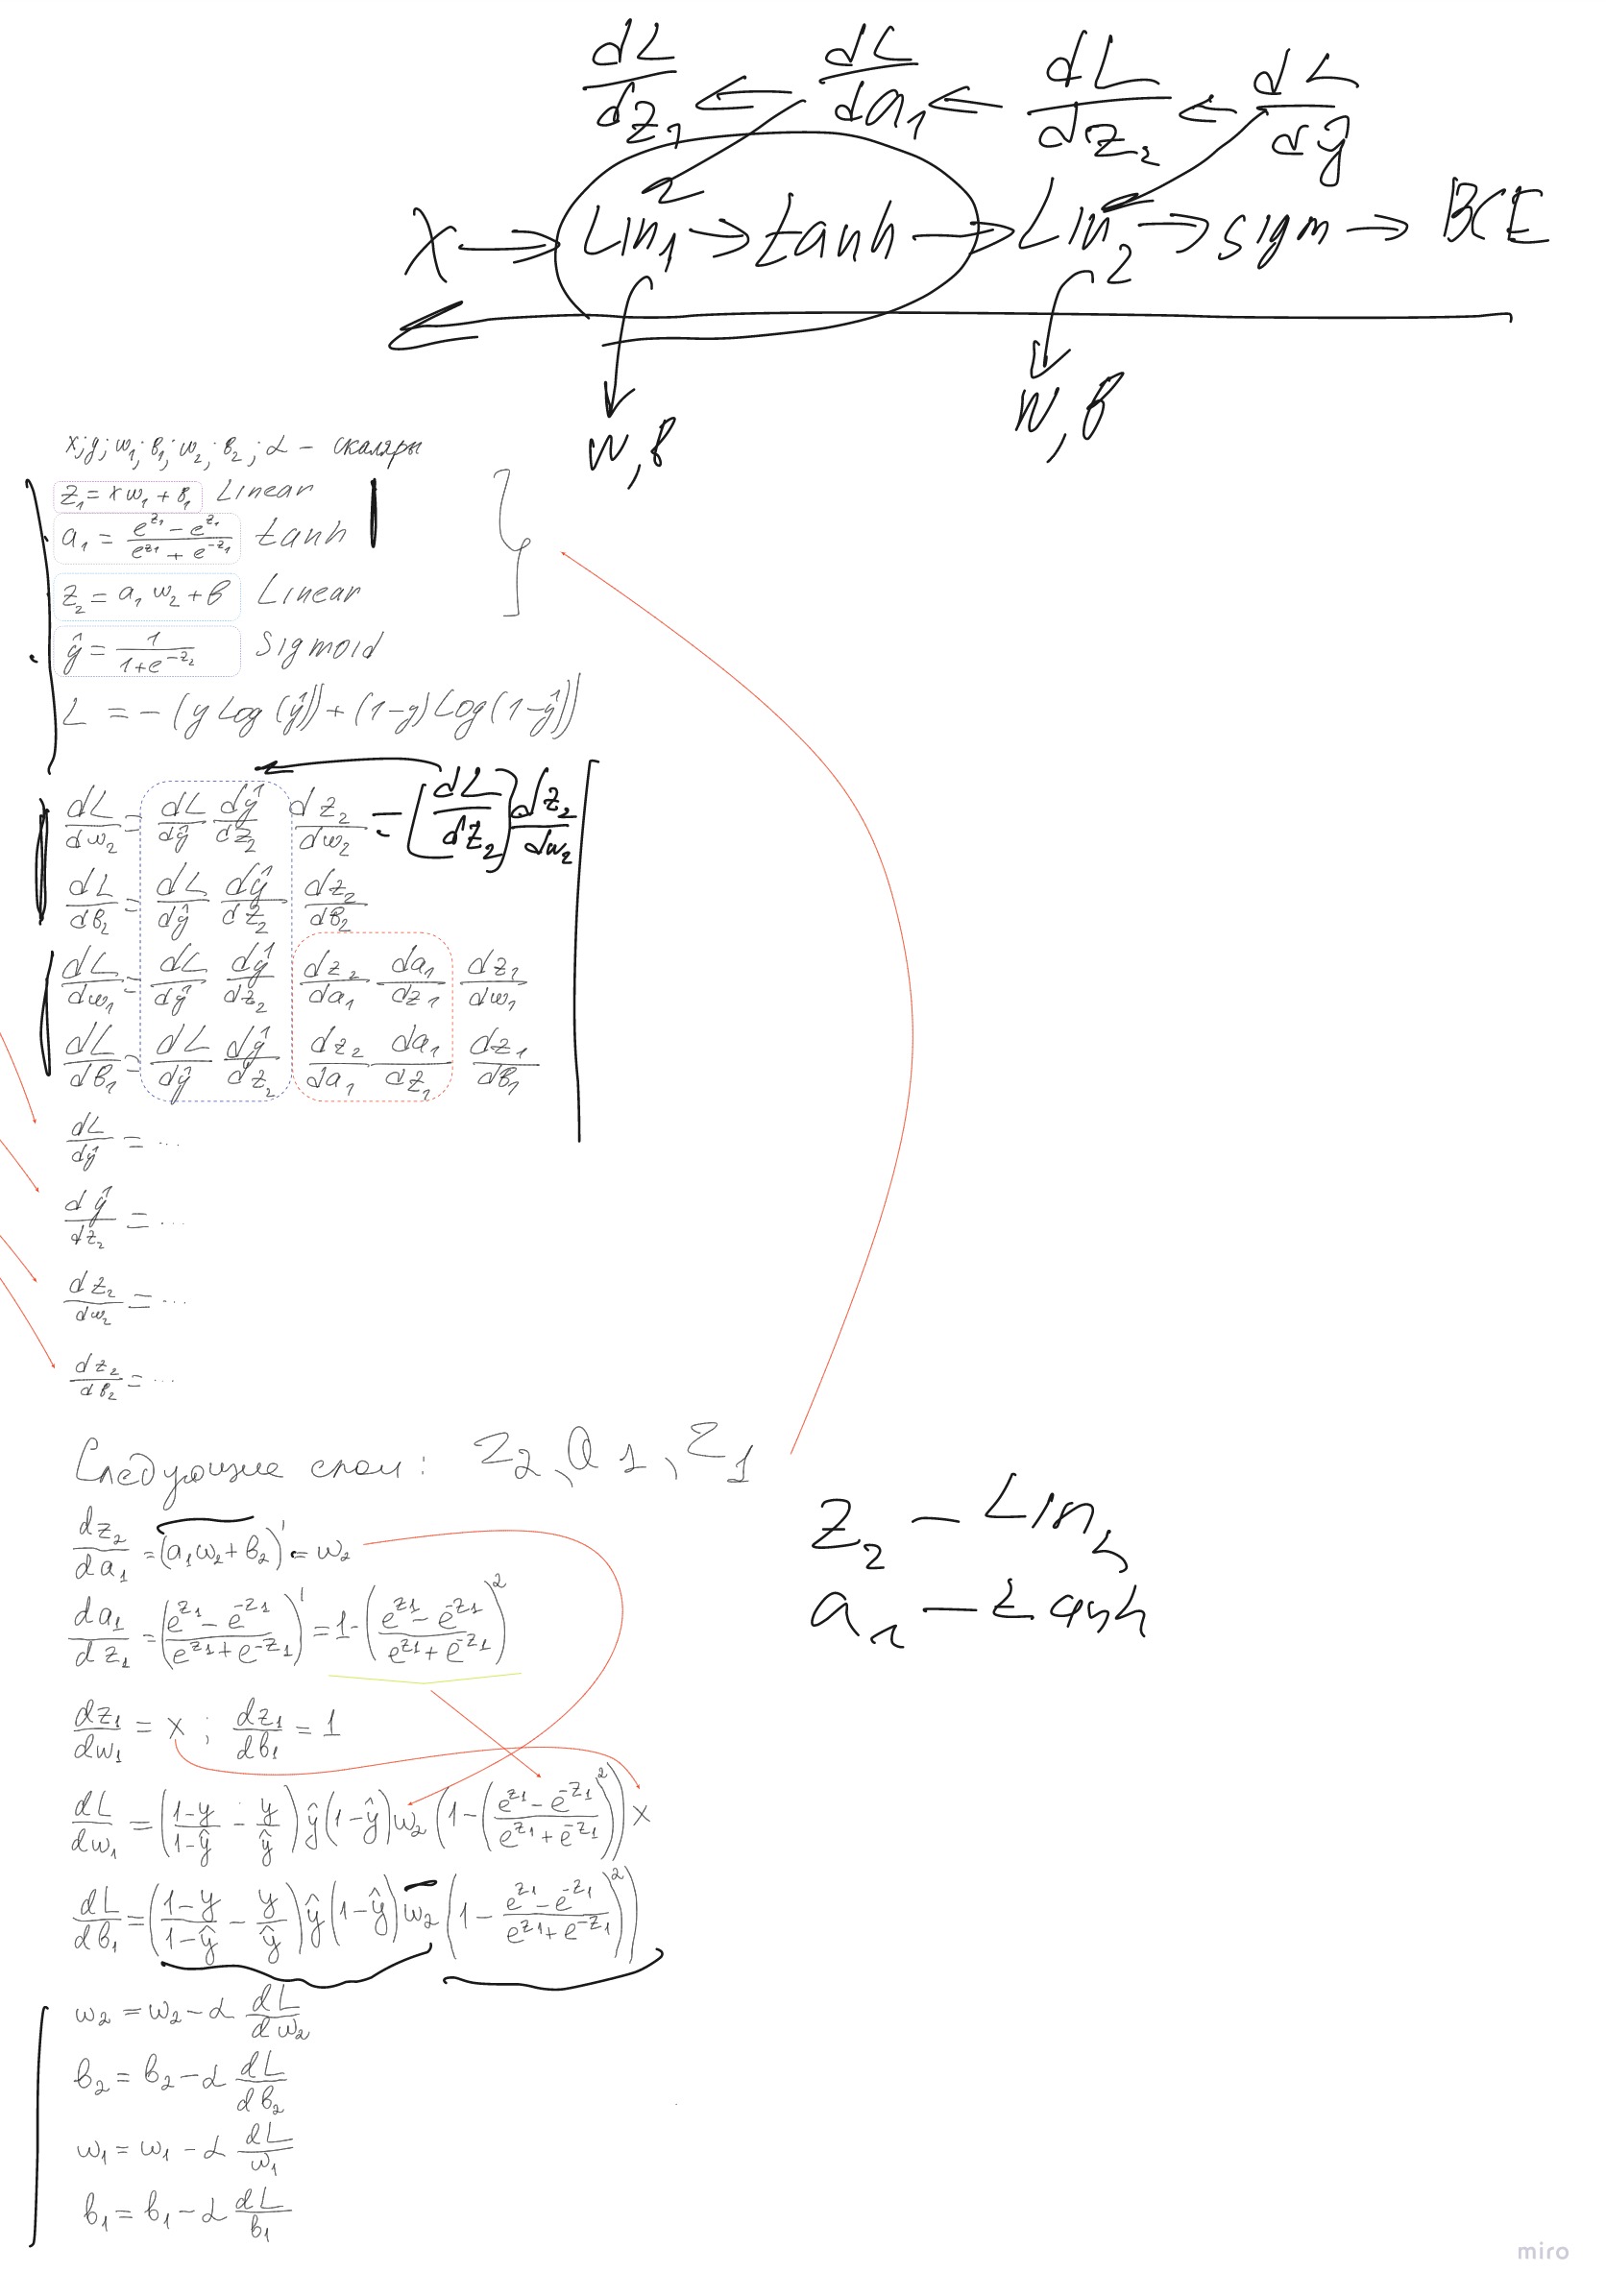 dL/dz₁ ← dL/da₁ ← dL/dz₂ ← dL/dŷ
X → Lin₁ → tanh → Lin₂ → sigm → BCE
w, b
w, b
x; y; w₁; b₁; w₂; b₂; α – скаляры
z₁ = x w₁ + b₁ Linear
a₁ = (e^z₁ − e^z₁)/(e^z₁ + e^−z₁) tanh
z₂ = a₁ w₂ + b Linear
ŷ = 1/(1+e^−z₂) Sigmoid
L = −(y Log(ŷ)) + (1−y) Log(1−ŷ))
dL/dw₂ = dL/dŷ dŷ/dz₂ dz₂/dw₂ = (dL/dz₂) dz₂/dw₂
dL/db₂ = dL/dŷ dŷ/dz₂ dz₂/db₂
dL/dw₁ = dL/dŷ dŷ/dz₂ dz₂/da₁ da₁/dz₁ dz₁/dw₁
dL/db₁ = dL/dŷ dŷ/dz₂ dz₂/da₁ da₁/dz₁ dz₁/db₁
dL/dŷ = ...
dŷ/dz₂ = ...
dz₂/dw₂ = ...
dz₂/db₂ = ...
Следующие слои: z₂, a₁, z₁
z₂ – Lin₂
dz₂/da₁ = (a₁w₂ + b₂)' = w₂
a₁ – tanh
da₁/dz₁ = ((e^z₁ − e^−z₁)/(e^z₁ + e^−z₁))' = 1 − ((e^z₁ − e^−z₁)/(e^z₁ + e^−z₁))²
dz₁/dw₁ = x ; dz₁/db₁ = 1
dL/dw₁ = ((1−y)/(1−ŷ) − y/ŷ) ŷ(1−ŷ) w₂ (1 − ((e^z₁ − e^−z₁)/(e^z₁ + e^−z₁))²) x
dL/db₁ = ((1−y)/(1−ŷ) − y/ŷ) ŷ(1−ŷ) w₂ (1 − (e^z₁ − e^−z₁)/(e^z₁ + e^−z₁))²)
w₂ = w₂ − α dL/dw₂
b₂ = b₂ − α dL/db₂
w₁ = w₁ − α dL/w₁
b₁ = b₁ − α dL/b₁
miro